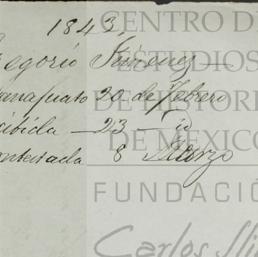 1843,
egorio Jimenez —
anajuato 20 de Febrero
cibida — 23 — id
ontestada 8 Marzo
CENTRO DE
ESTUDIOS
DE HISTORI
DE MEXICO
FUNDACIÓ
Carlos Sli